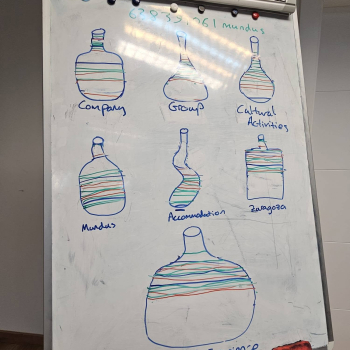 mundus
Company
Group
Cultural
Activities
Mundus
Accommodation
Zaragoza